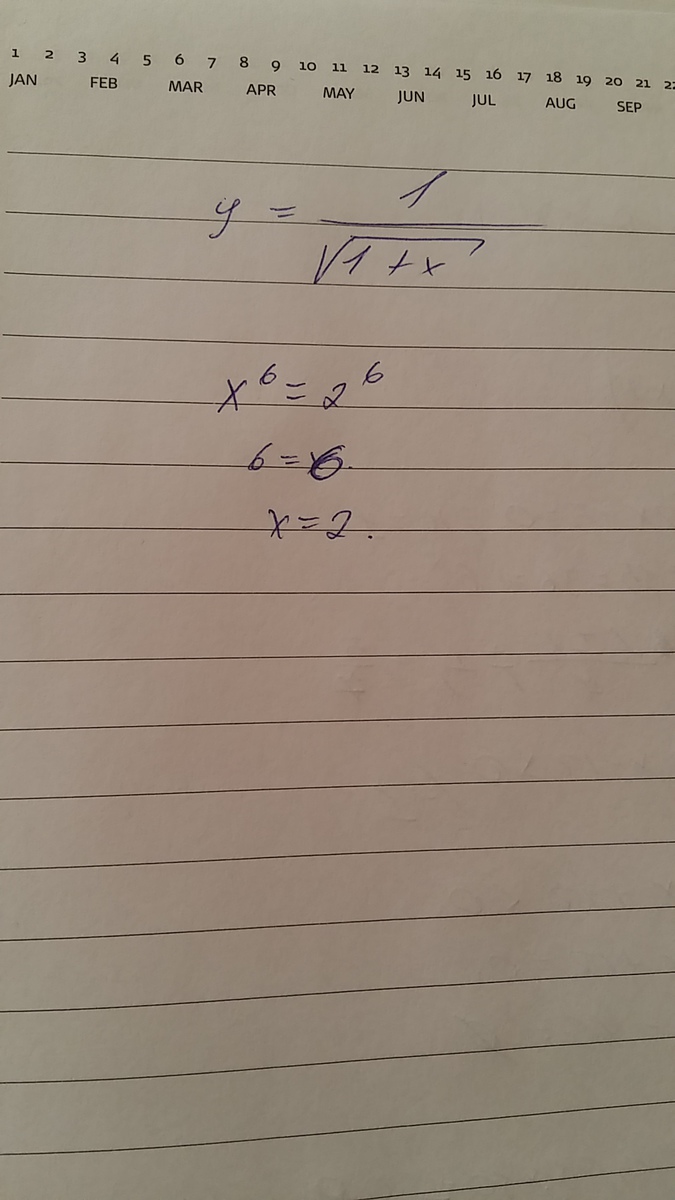 1 2 3 4 5 6 7 8 9 10 11 12 13 14 15 16 17 18 19 20 21 22
JAN FEB MAR APR MAY JUN JUL AUG SEP
y = 1 / √(1 + x)
x⁶ = 2⁶
6 = 6
x = 2.